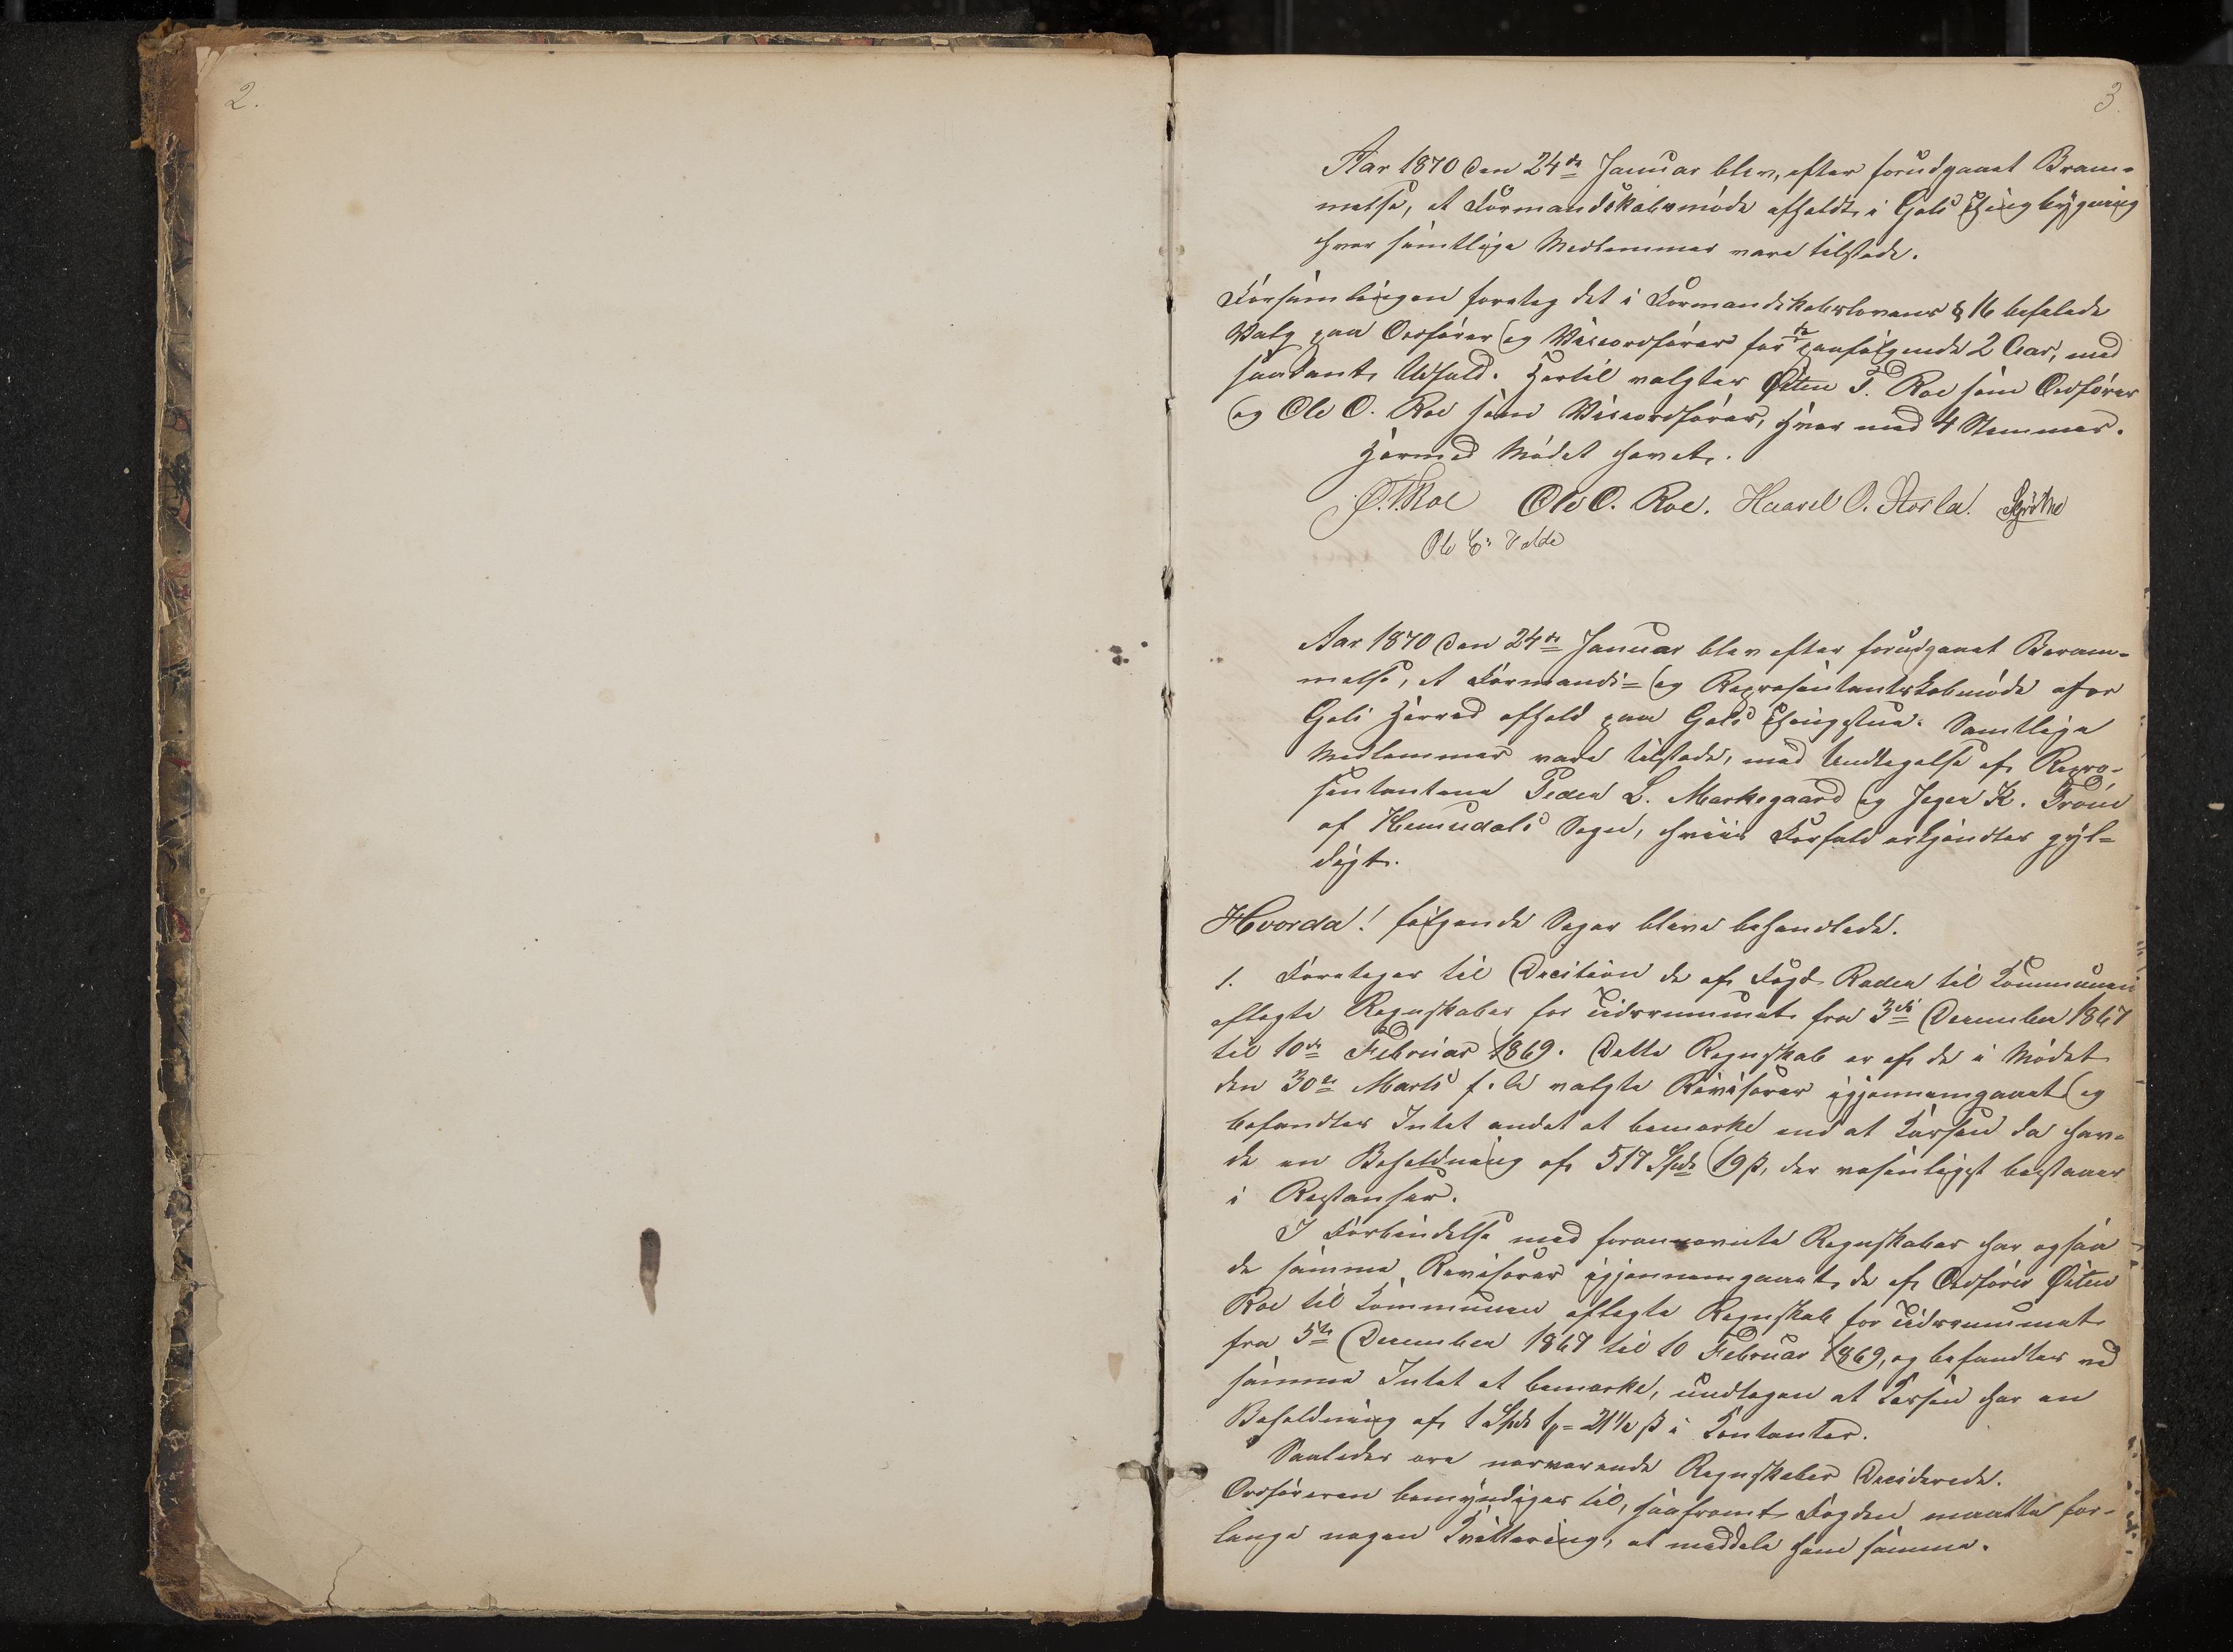 2.
3.
Aar 1870 den 24de Januar blev, efter forudgaaet Bram-
melse, et Formandskabsmöde afholdt i Gols Thingbygning
hvor samtlige Medlemmer vare tilstede.
Forsamlingen foretog det i Formandskabslovens § 16 befalede
Valg paa Ordförer og Viceordförer for de paafölgende 2 Aar, med
saadant Udfald. Hertil valgtes Östen T. Roe som Ordförer
og Ole O. Roe som Viceordförer, hver med 4 Stemmer.
Hermed Mödet hævet.
Ö.T.Roe Ole O. Roe. Haavel O. Storla.
Ole E. Halde
Aar 1870 den 24de Januar blev efter forudgaaet Beram-
melse, et Formands= og Repræsentantskabmöde
Gols Herred afhold paa Gols Thingstue. Samtlige
Medlemmer vare tilstede, med Undtagelse af Repræ-
sentanterne Peder L. Markegaard og K. Trøim
af Hemsedals Sogn, hvis Forfald erkjendtes gyl=
digt.
Hvorda! følgende Sager bleve behandlede.
1. Foretoges til Decition de af Fogd Roden til Kommunen
aflagte Regnskaber for Tidsrummet fra 3die December 1867
til 10de Februar 1869. Dette Regnskab er af de i Mödet
den 30te Marts f. A valgte Revisorer igjennemgaaet og
befandtes Intet andet at bemærke end at Kassen da hav-
de en Beholdning af 517 Spd 19 ß, der væsenligst bestaaer
i Restanser.
I Forbindelse med forannævnte Regnskaber har ogsaa
de samme Revisorer igjennemgaaet de af Ordförer Östen
Roe til Kommunen aflagte Regnskab for Tidsrummet
fra 5te December 1867 til 10 Februar 1869, og befandtes ved
samme Intet at bemærke, undtagen at Kassen har en
Beholdning af 1 Spd = 21 1/2 ß i Kontanter.
Saaledes ere nærværende Regnskaber Deciderede.
Ordföreren bemyndiges til, saafremt Fogden maatte for-
lange nogen Kvittering, at meddele ham samme.